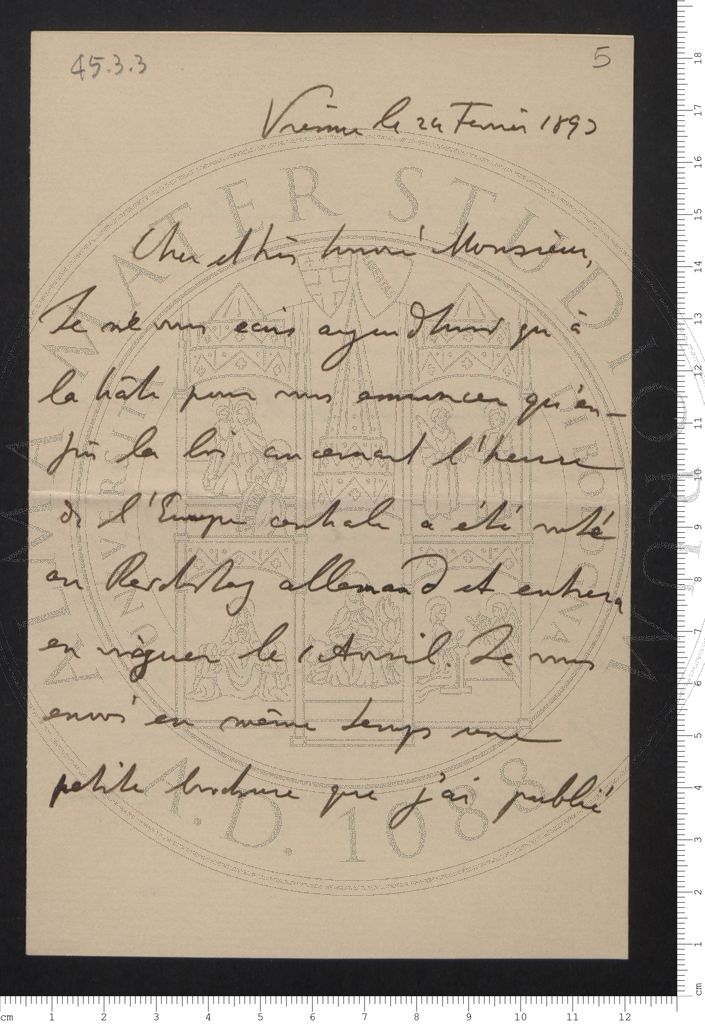 45.3.3
5
Vienne le 24 Fevrier 1893
Cher et très honoré Monsieur,
Je ne vous ecris aujourd'hui qu'à
la hâte pour vous annoncer qu'en-
fin la loi concernant l'heure
de l'Europe centrale a été voté
au Reichstag allemand et entrera
en vigueur le 1 Avril. Je vous
envoi en même temps une
petite brochure que j'ai publié
ALMA MATER STUDIORUM
A.D. 1088
cm 1 2 3 4 5 6 7 8 9 10 11 12
cm 1 2 3 4 5 6 7 8 9 10 11 12 13 14 15 16 17 18